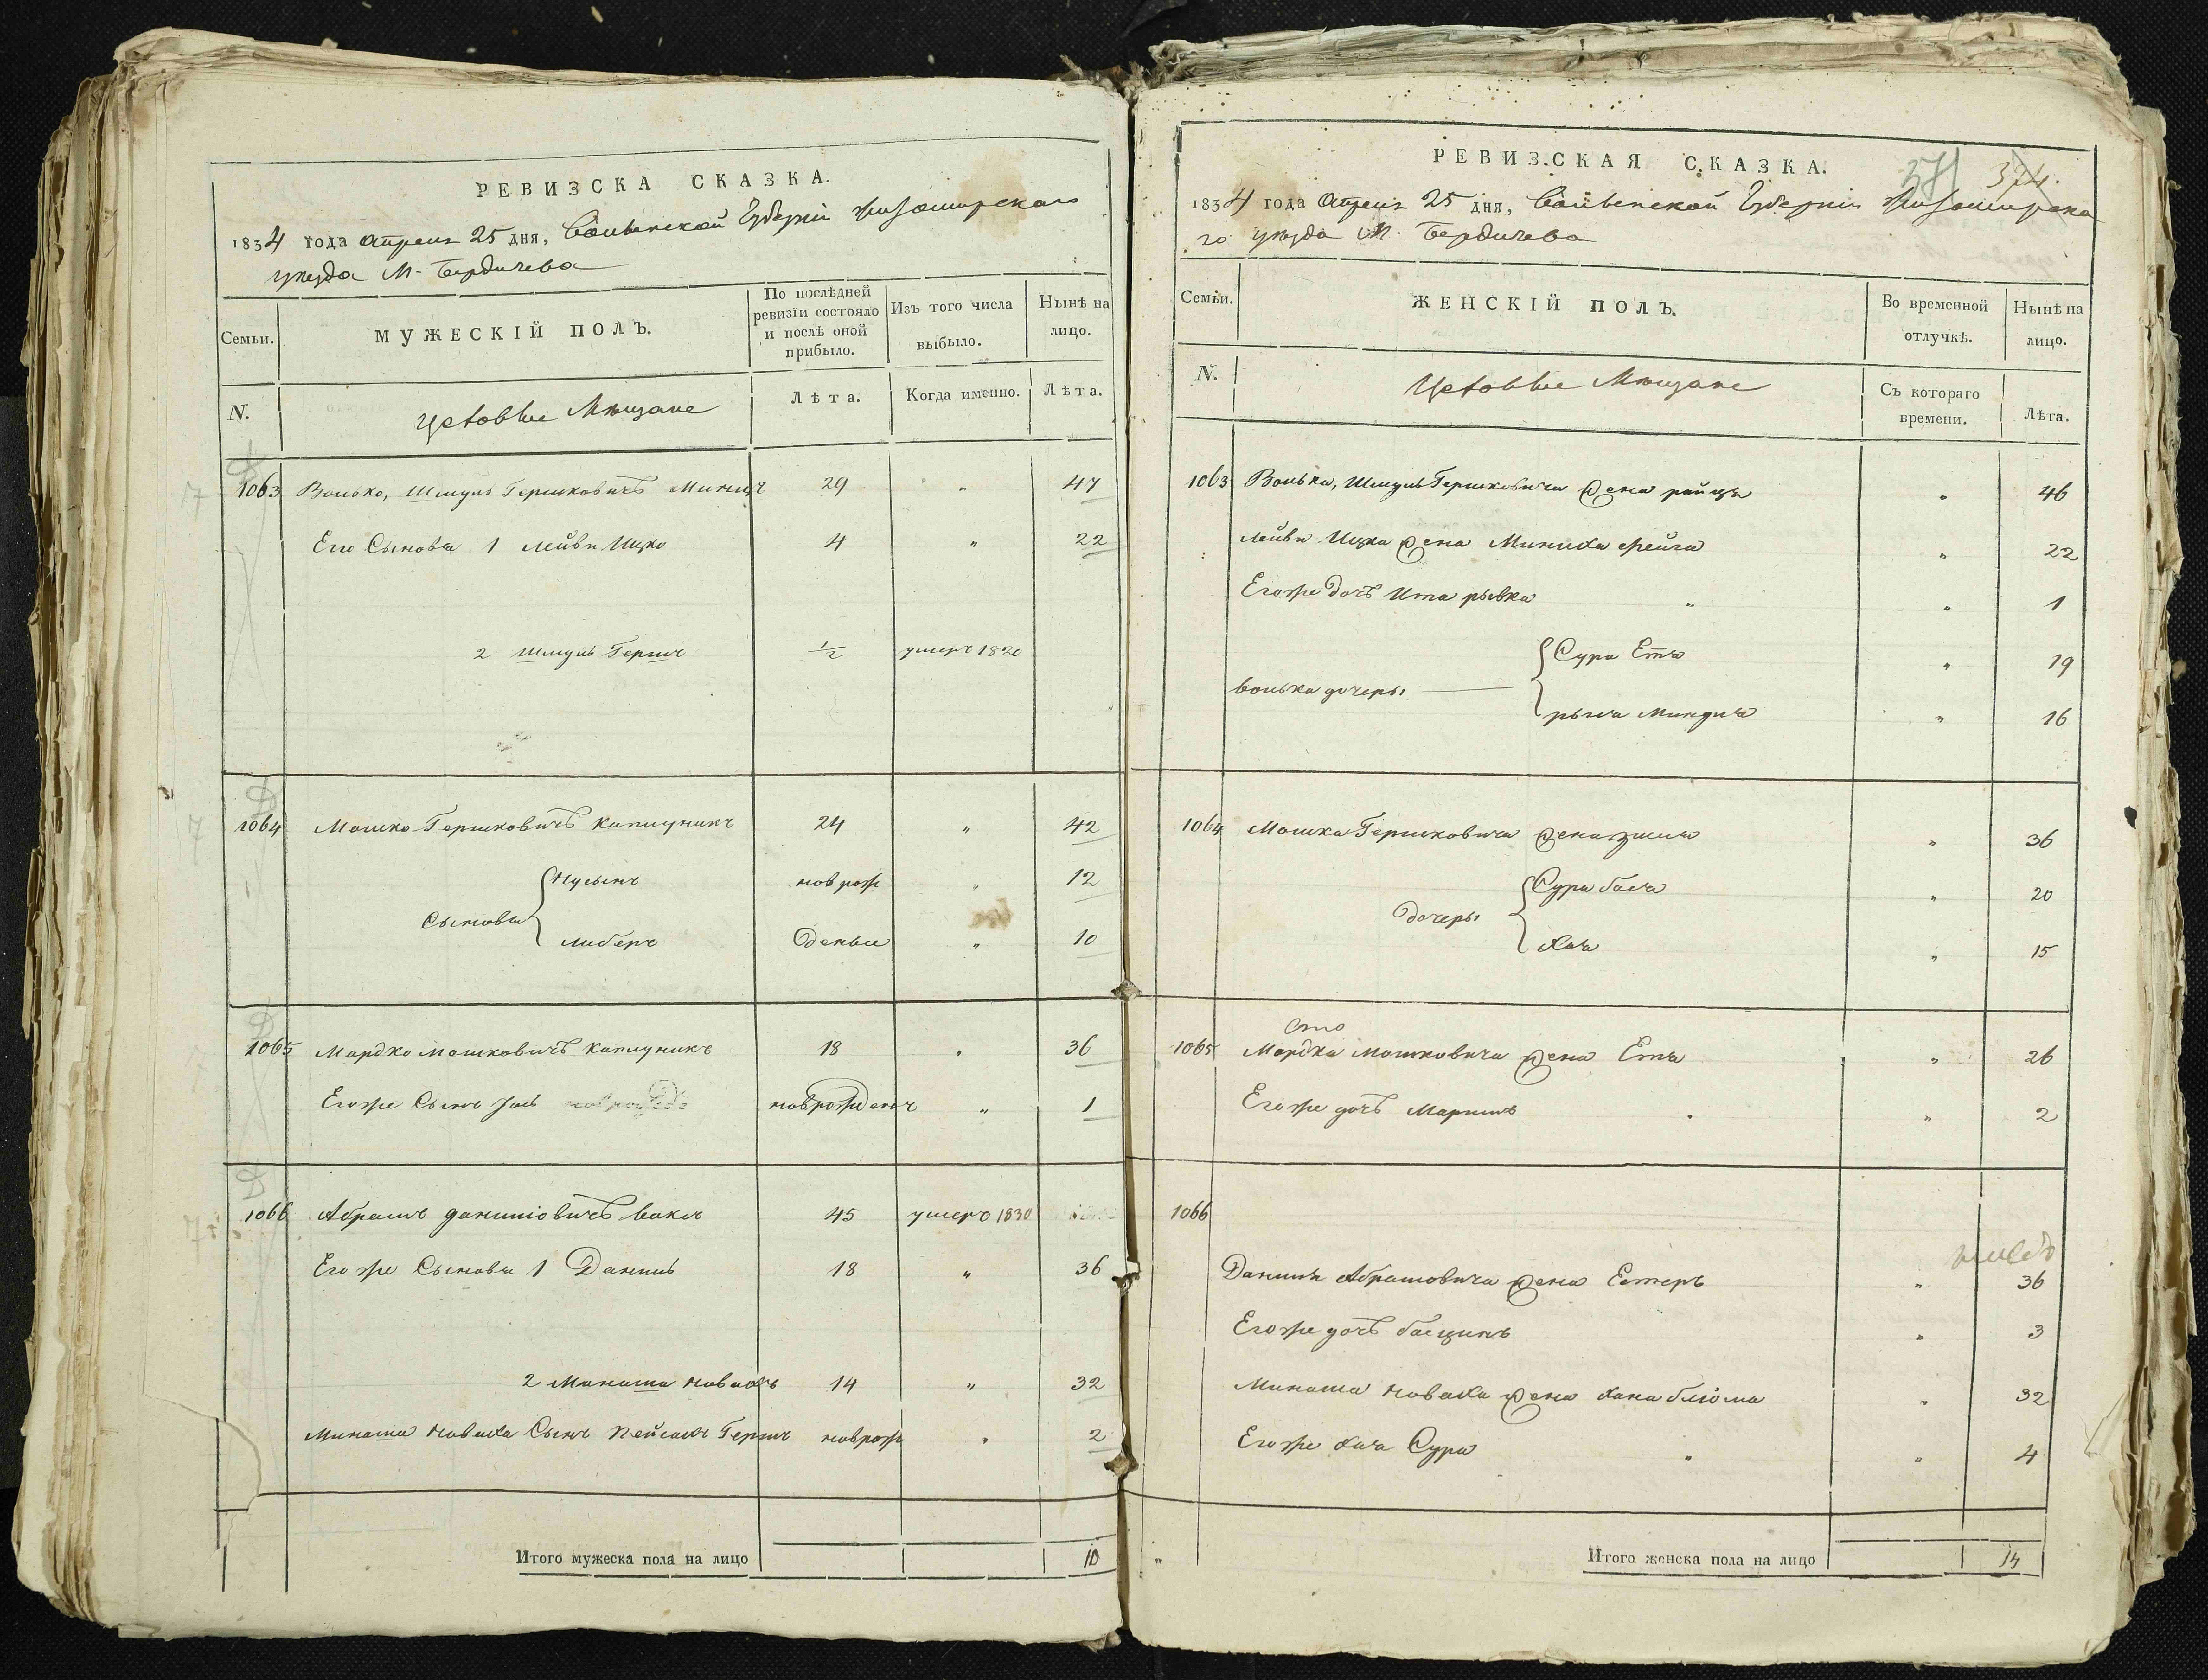 РЕВИЗСКА СКАЗКА.
1834 года Апреля 25 дня, Волынской Губерніи Житомирского
уезда М. Бердичева
Семьи.
МУЖЕСКІЙ ПОЛЪ.
По послѣдней ревизіи состояло и послѣ оной прибыло.
Изъ того числа выбыло.
Нынѣ на лицо.
N.
Цеховые Мещане
Лѣта.
Когда именно.
Лѣта.
1063 Волько, Шмуль Гершковичъ 29 " 47
Его Сыновья 1 Лейби Ицко 4 " 22
2 Шмуль Герш 1/2 умеръ 1820
1064 Мошко Гершковичъ Капшуникъ 24 " 42
Сыновья
Нусынъ новрож " 12
Либеръ Денные " 10
1065 Мордко Мошковичъ Капшуникъ 18 " 36
Его же Сынъ новрожденъ " 1
1066 Абрамъ Даниловичъ 45 умеръ 1830
Его же Сыновья 1 Данило 18 " 36
2 Манаша Новахъ 14 " 32
Манаша Новаха Сынъ Пейсахъ Герш новрож " 2
Итого мужеска пола на лицо 10
РЕВИЗСКАЯ СКАЗКА.
371 374.
1834 года Апреля 25 дня, Волынской Губерніи Житомирска
го уезда М. Бердичева
Семьи.
ЖЕНСКІЙ ПОЛЪ.
Во временной отлучкѣ.
Нынѣ на лицо.
N.
Цеховые Мещане
Съ котораго времени.
Лѣта.
1063 Волька, Шмуль Гершковича жена Райця " 46
Лейби Ицка жена Миниха Фейга " 22
Его же дочь Ита Рывка " " 1
Волька дочеры
Сура Етя " 19
Рыся Миндля " 16
1064 Мошка Гершковича жена " 36
дочеры
Сура Бася " 20
Хая " 15
1065 Мордка Мошковича жена Етя " 26
Его же дочь Маріямъ " " 2
1066
Данила Абрамовича жена Естеръ " 36
Его же дочь " 3
Манаша Новаха жена Хана Блюма " 32
Его же Хая Сура " " 4
Итого женска пола на лицо 14